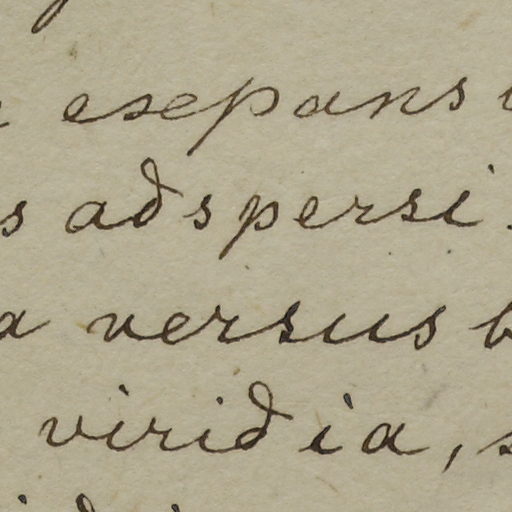 expans
s adspersi.
a versus b
viridia, s